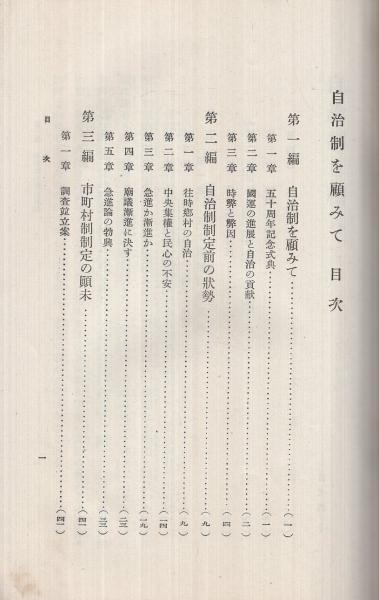 自治制を顧みて 目次
第一編 自治制を顧みて……(一)
第一章 五十周年記念式典……(一)
第二章 國運の進展と自治の貢献……(二)
第三章 時弊と弊因……(四)
第二編 自治制制定前の狀勢……(九)
第一章 往時鄕村の自治……(九)
第二章 中央集權と民心の不安……(一四)
第三章 急進か漸進か……(一九)
第四章 廟議漸進に決す……(二三)
第五章 急進論の勃興……(三三)
第三編 市町村制制定の顚末……(四一)
第一章 調査竝立案……(四一)
目次
一